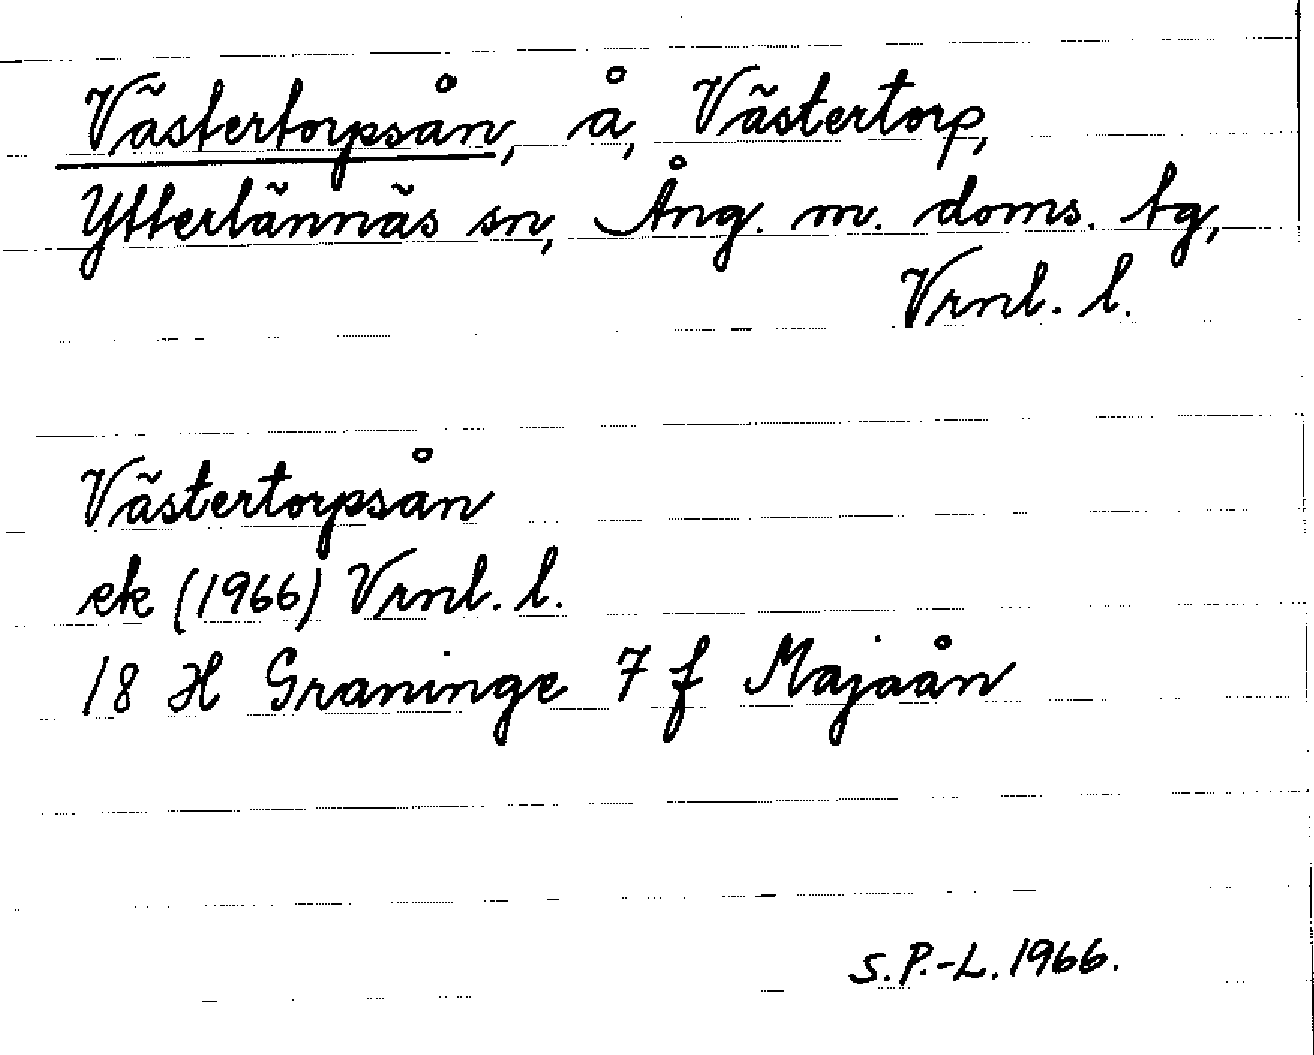 Västertorpsån, å, Västertorp,
Ytterlännäs sn, Ång. m. doms. tg,
Vrnl. l.
Västertorpsån
ek (1966) Vrnl. l.
18 H Graninge 7 f Majaån
S.P.-L. 1966.